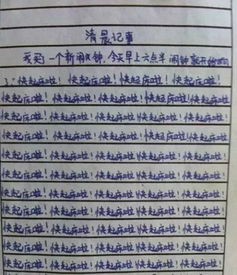 清晨记事
我买了一个新闹钟,今天早上六点半闹钟就开始响
了:快起床啦!快起床啦!快起床啦!快起床啦!
快起床啦!快起床啦!快起床啦!快起床啦!快起床啦!
快起床啦!快起床啦!快起床啦!快起床啦!快起床啦!
快起床啦!快起床啦!快起床啦!快起床啦!快起床啦!
快起床啦!快起床啦!快起床啦!快起床啦!快起床啦!
快起床啦!快起床啦!快起床啦!快起床啦!快起床啦!
快起床啦!快起床啦!快起床啦!快起床啦!快起床啦!
快起床啦!快起床啦!快起床啦!快起床啦!快起床啦!
快起床啦!快起床啦!快起床啦!快起床啦!快起床啦!
快起床啦!快起床啦!快起床啦!快起床啦!快起床啦!
快起床啦!快起床啦!快起床啦!快起床啦!快起床啦!
快起床啦!快起床啦!快起床啦!快起床啦!快起床啦!